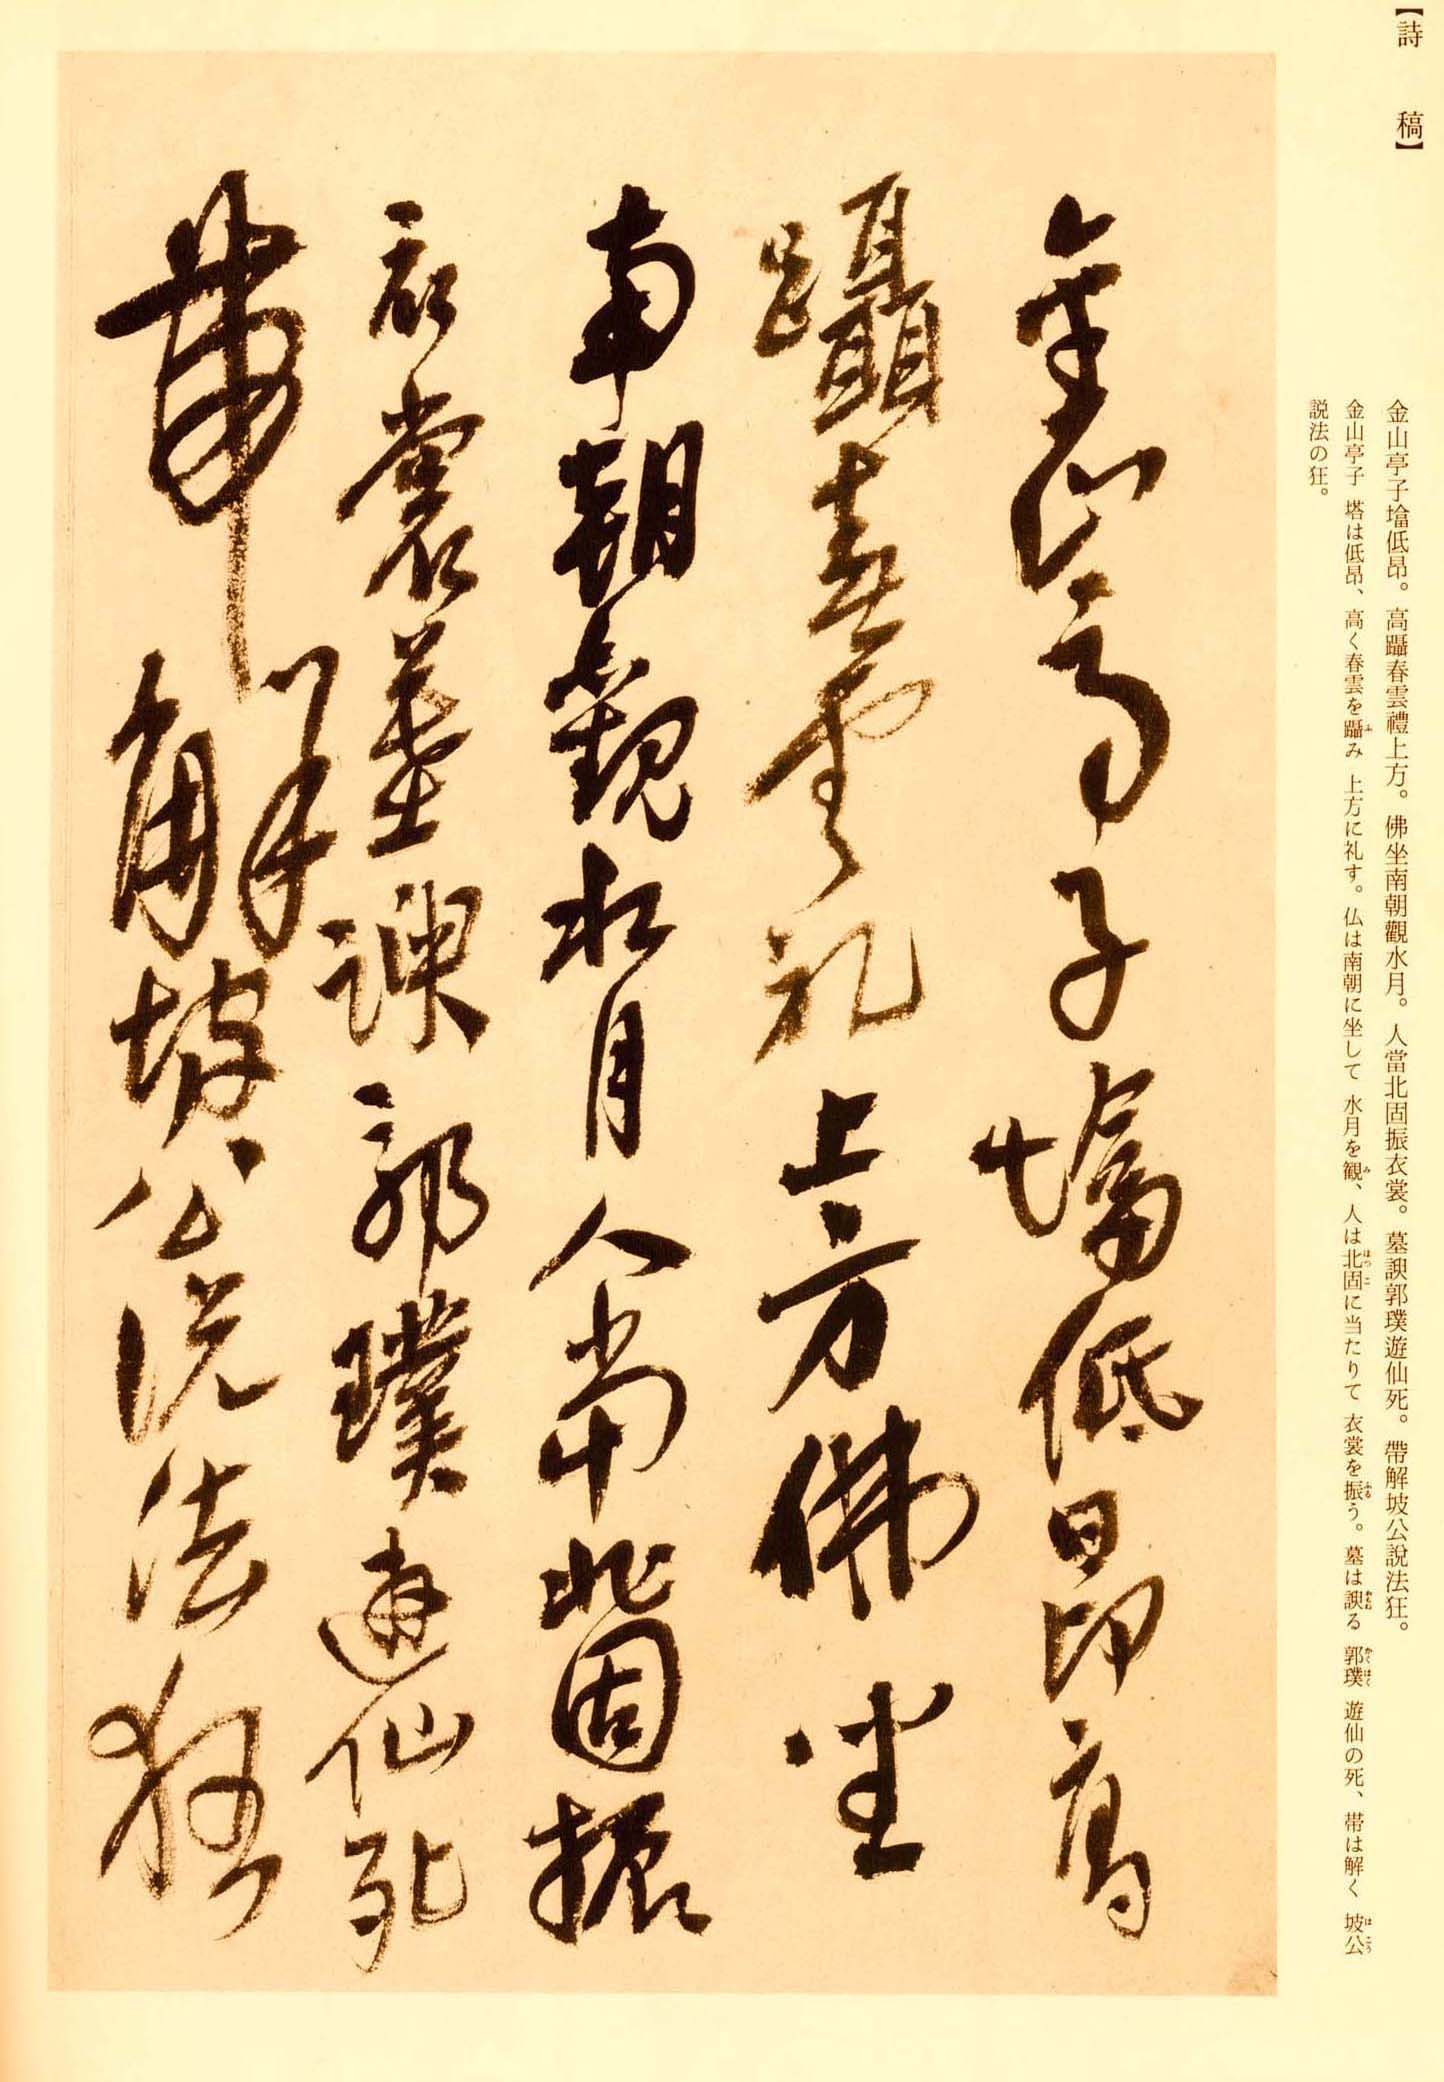 【詩 稿】
金山亭子墖低昂。高躡春雲禮上方。佛坐南朝觀水月。人當北固振衣裳。墓諛郭璞遊仙死。帶解坡公說法狂。
金山亭子 塔は低昂、高く春雲を躡み 上方に礼す。仏は南朝に坐して 水月を観、人は北固に当たりて 衣裳を振う。墓は諛る 郭璞 遊仙の死、帯は解く 坡公
説法の狂。
金山亭子墖低昂高
躡春雲礼上方佛坐
南朝觀水月人當北固振
衣裳墓諛郭璞遊仙死
帶解坡公説法狂